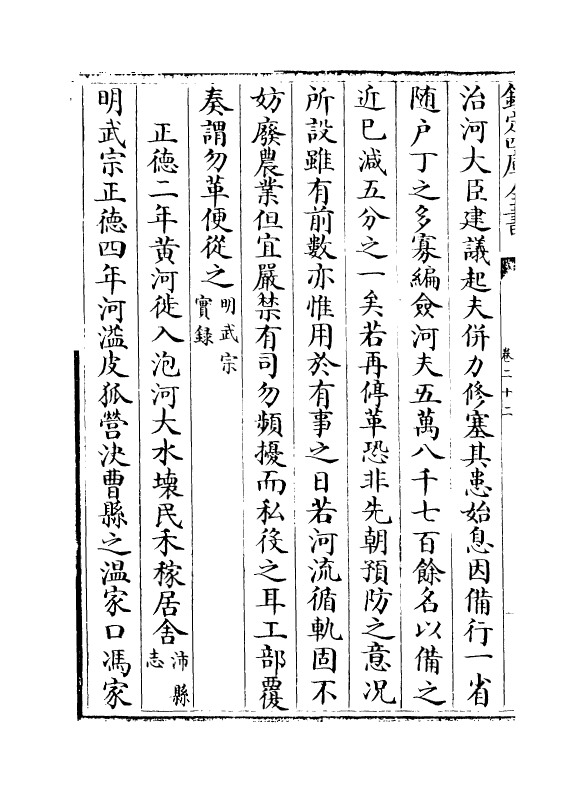 欽定四庫全書
卷二十二
治河大臣建議起夫併力修塞其患始息因備行一省
随户丁之多寡編僉河夫五萬八千七百餘名以備之
近已減五分之一矣若再停革恐非先朝預防之意况
所設雖有前數亦惟用於有事之日若河流循軌固不
妨廢農業但宜嚴禁有司勿頻擾而私役之耳工部覆
奏謂勿革便從之明武宗實録
正徳二年黄河徙入泡河大水壊民禾稼居舎沛縣志
明武宗正徳四年河溢皮狐營決曹縣之温家口馮家